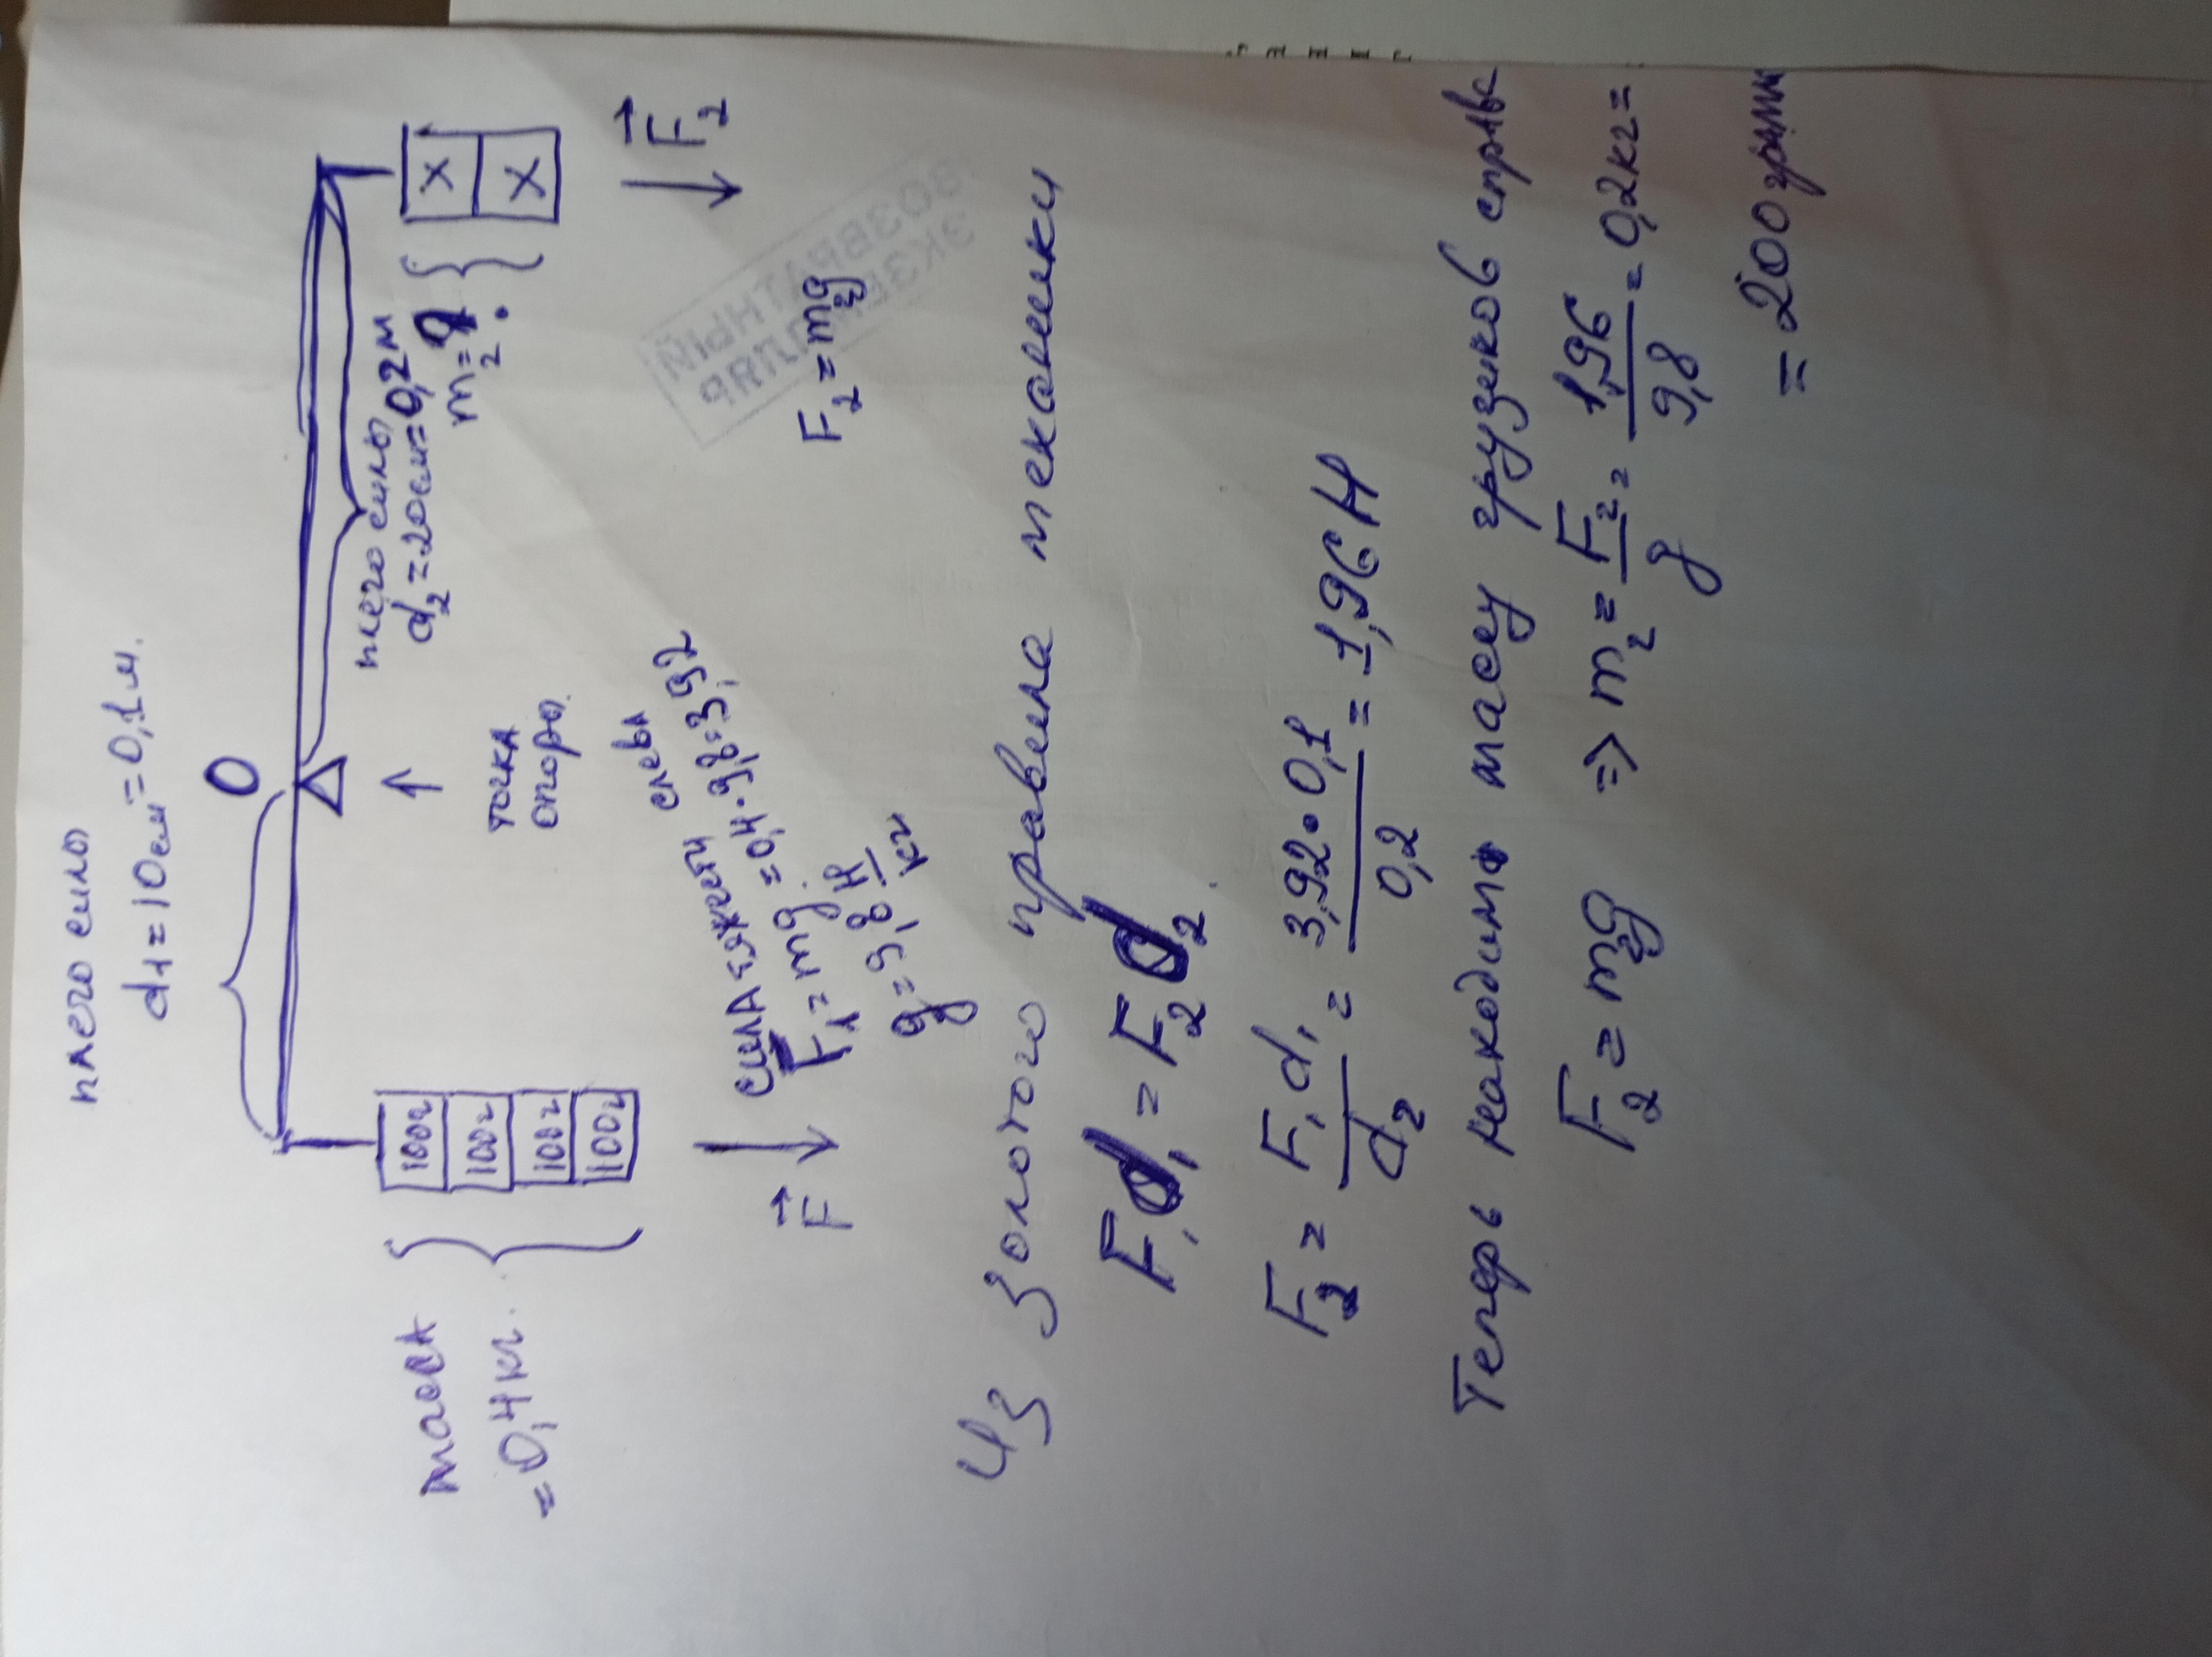 плечо силы
d1 = 10см = 0,1м.
O
плечо силы
d₂ = 20см = 0,2м
m₂ = ?
масса
= 0,4кг.
100г
100г
100г
100г
X
X
точка
опоры
F⃗
F⃗₂
сила тяжести слева
F₁ = mg = 0,4 · 9,8 = 3,92
g = 9,8 Н/кг
F₂ = m₂g
ВОЗВРАТНЫЙ
ЭКЗЕМПЛЯР
Из золотого правила механики
F₁d₁ = F₂d₂.
F₂ = F₁d₁/d₂ = 3,92 · 0,1/0,2 = 1,96 Н
Теперь находим массу грузиков справа
F₂ = m₂g => m₂ = F₂/g = 1,96/9,8 = 0,2кг =
= 200 грамм